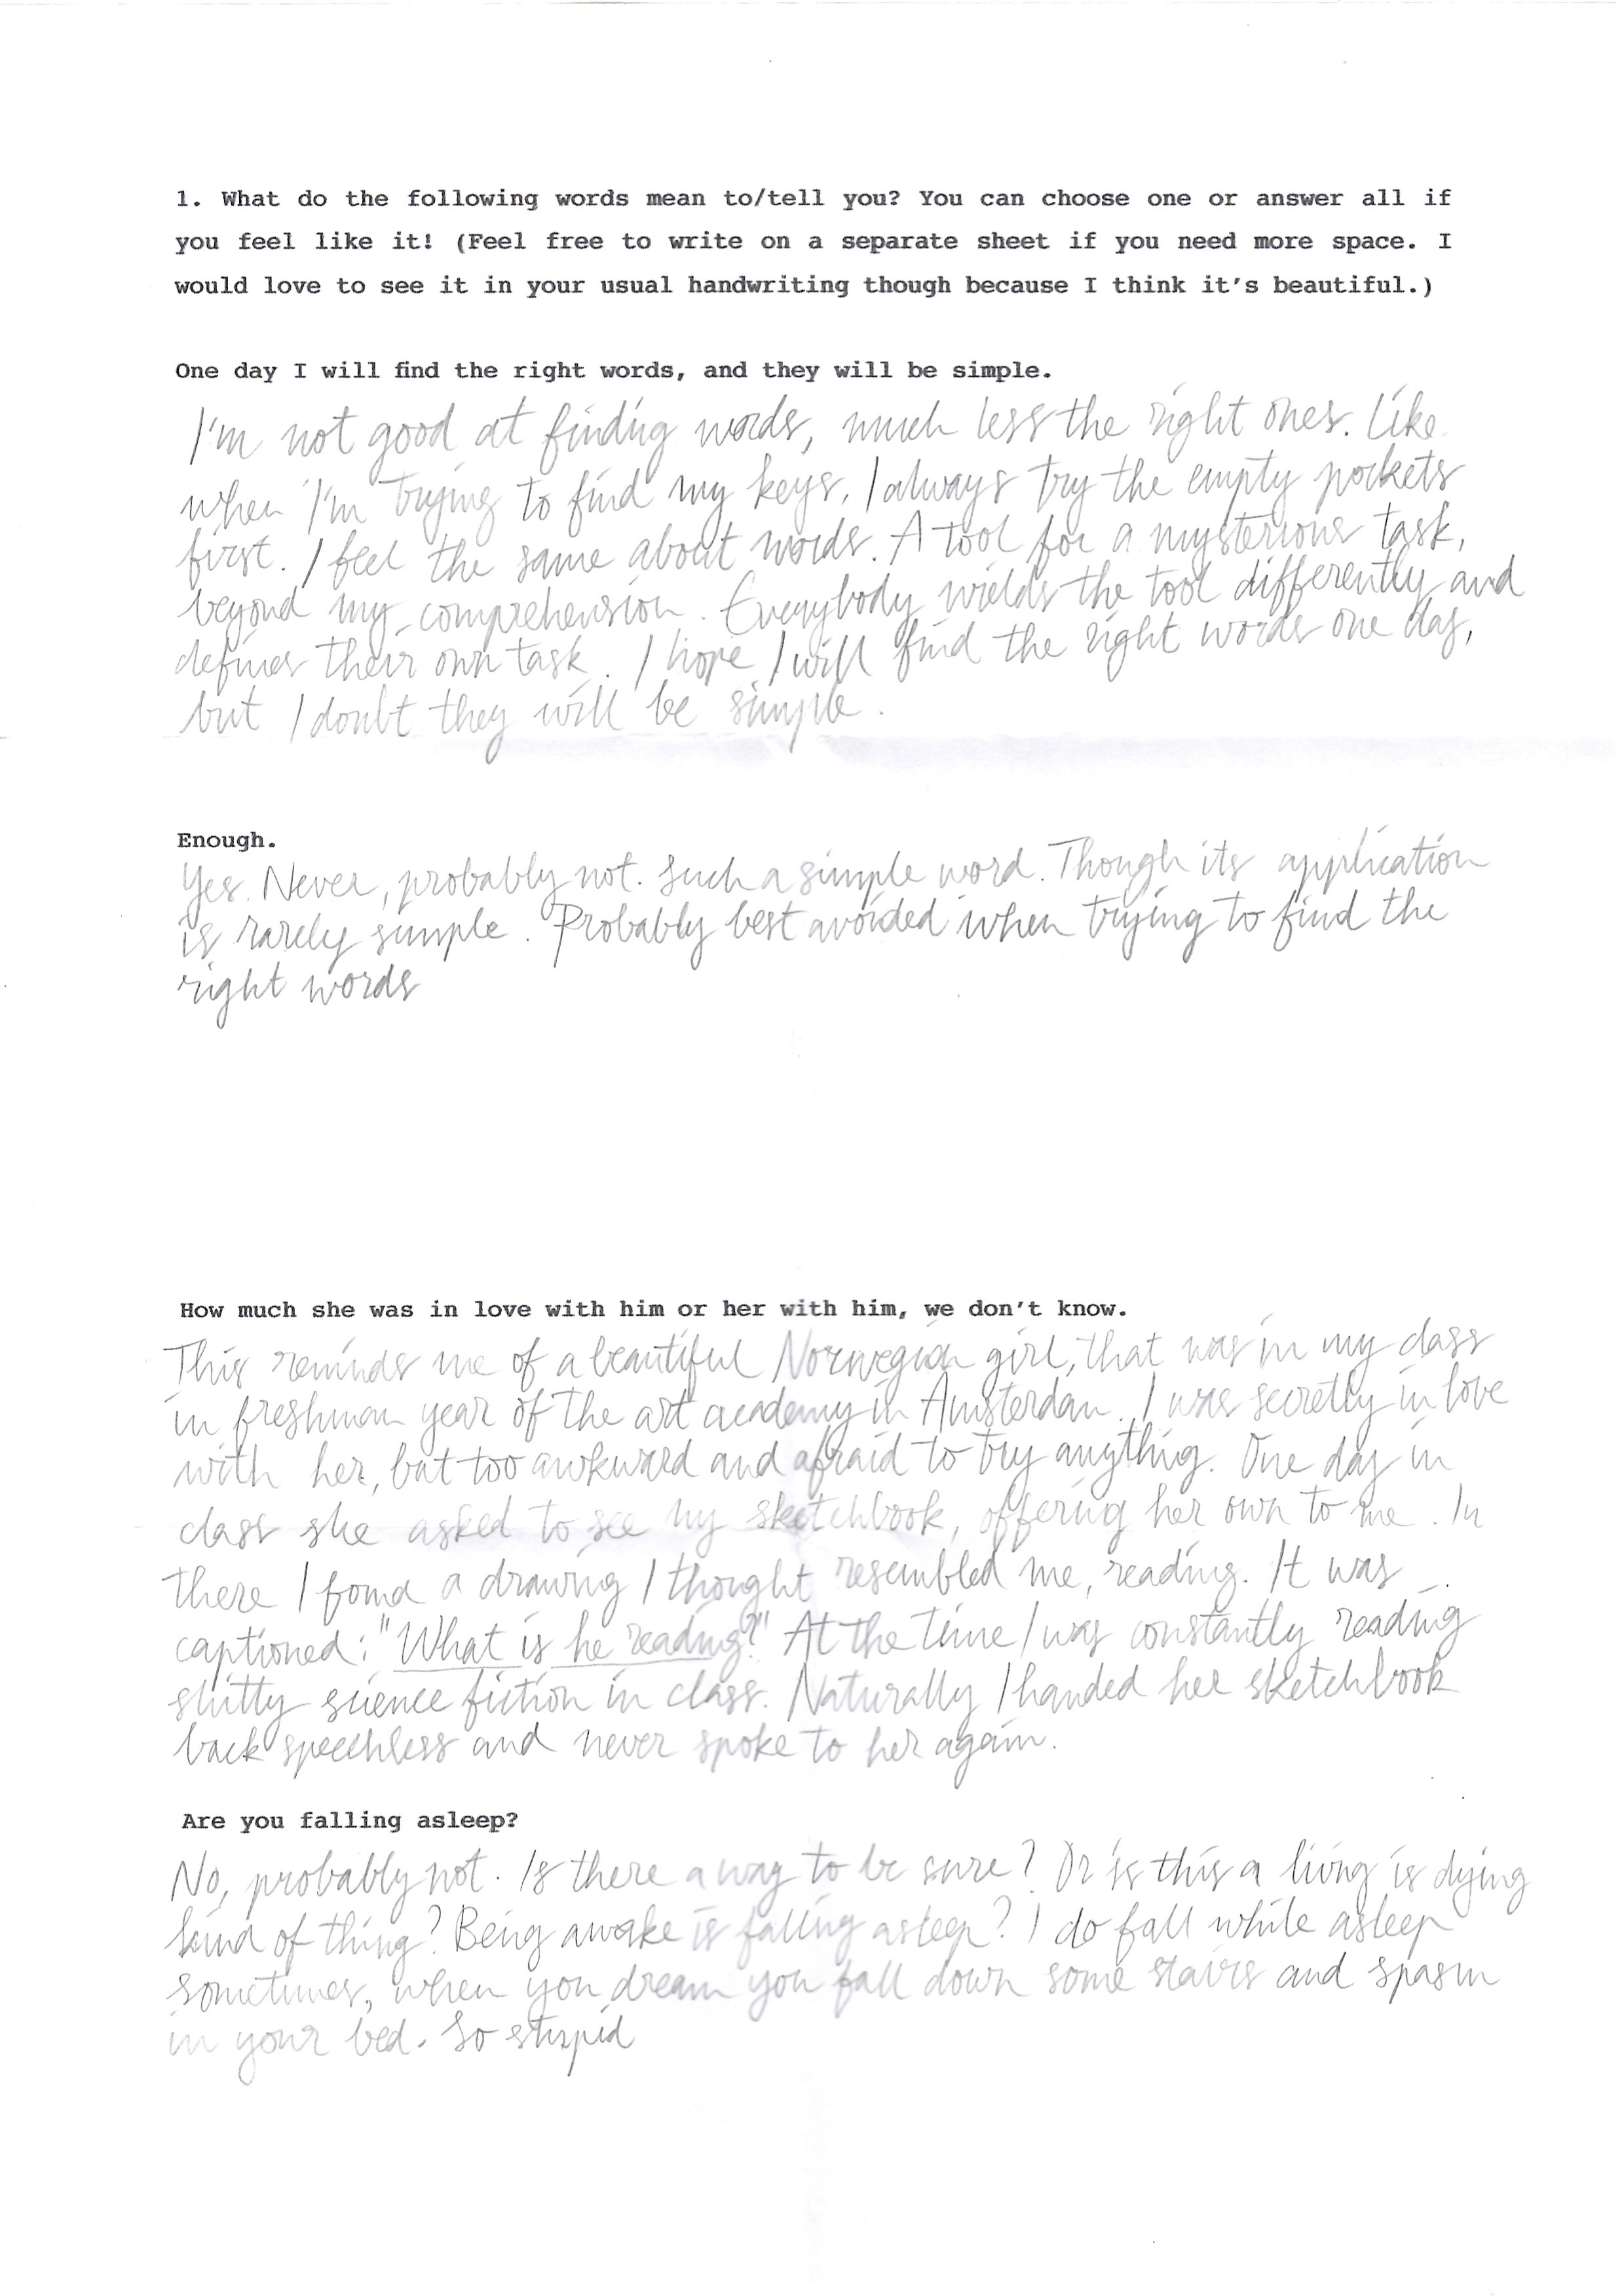 1. What do the following words mean to/tell you? You can choose one or answer all if
you feel like it! (Feel free to write on a separate sheet if you need more space. I
would love to see it in your usual handwriting though because I think it's beautiful.)
One day I will find the right words, and they will be simple.
I'm not good at finding words, much less the right ones. Like
when I'm trying to find my keys, I always try the empty pockets
first. I feel the same about words. A tool for a mysterious task,
beyond my comprehension. Everybody wields the tool differently and
defines their own task. I hope I will find the right words one day,
but I doubt they will be simple.
Enough.
Yes. Never, probably not. Such a simple word. Though its application
is rarely simple. Probably best avoided when trying to find the
right words
How much she was in love with him or her with him, we don't know.
This reminds me of a beautiful Norwegian girl, that was in my class
in freshman year of the art academy in Amsterdam. I was secretly in love
with her, but too awkward and afraid to try anything. One day in
class she asked to see my sketchbook, offering her own to me. In
there I found a drawing I thought resembled me, reading. It was
captioned: "What is he reading?" At the time I was constantly reading
shitty science fiction in class. Naturally I handed her sketchbook
back speechless and never spoke to her again.
Are you falling asleep?
No, probably not. Is there a way to be sure? Or is this a living is dying
kind of thing? Being awake is falling asleep? I do fall while asleep
sometimes, when you dream you fall down some stairs and spasm
in your bed. So stupid